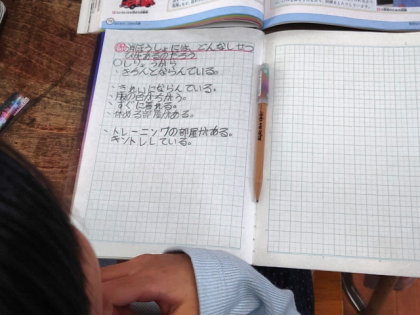 しょうぼうしょには、どんなせつ
びがあるのだろう。
○しりょうから
・きちんとならんでいる。
・きれいにならんでいる。
・服の色がちがう。
・すぐに着れる。
・休める部屋がある。
・トレーニングの部屋がある。
キントレしている。